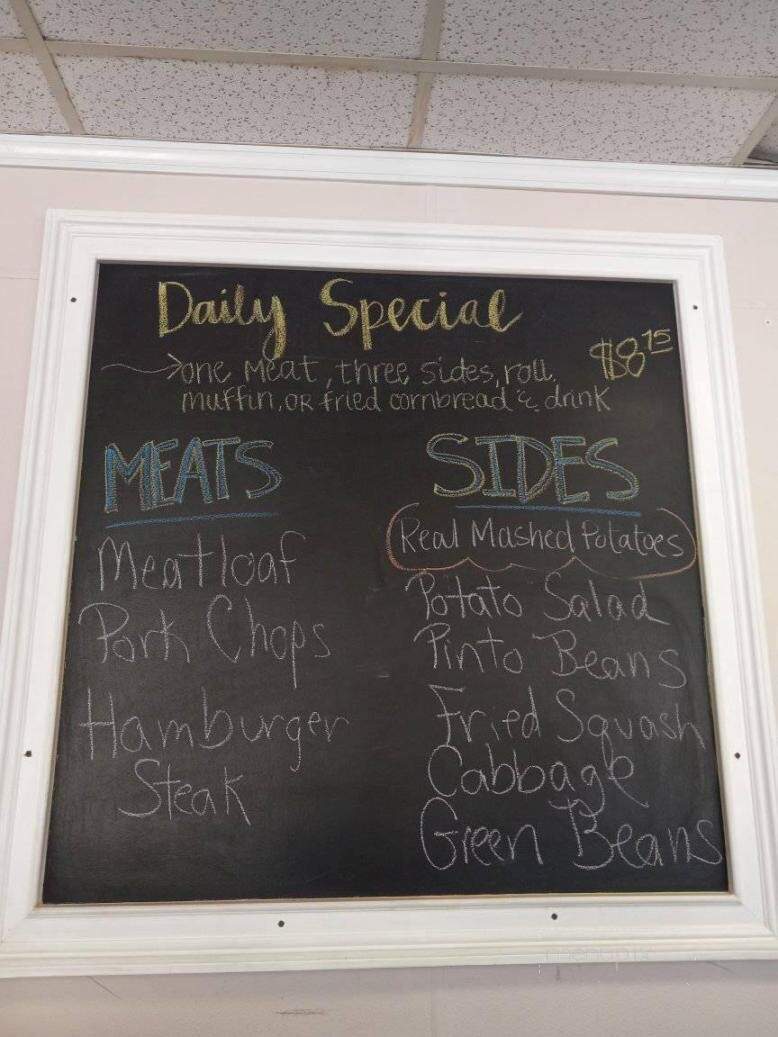 Daily Special
$8 15
one meat, three sides, roll,
muffin, OR fried cornbread & drink
MEATS
Meatloaf
Pork Chops
Hamburger
Steak
SIDES
Real Mashed Potatoes
Potato Salad
Pinto Beans
Fried Squash
Cabbage
Green Beans